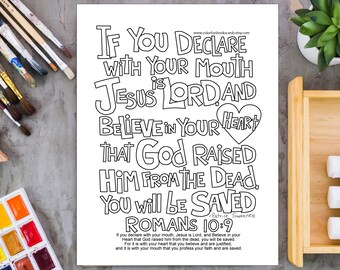 www.colorfuntbooksandy.etsy.com
IF YOU DECLARE
WITH YOUR MOUTH
JESUS IS LORD, AND
BELIEVE IN YOUR HEART
THAT GOD RAISED
HIM FROM THE DEAD,
YOU WILL BE SAVED
ROMANS 10:9
If you declare with your mouth, Jesus is Lord, and Believe in your
Heart that God raised him from the dead, you will be saved.
For it is with your heart that you believe and are justified,
and it is with your mouth that you profess your faith and are saved.